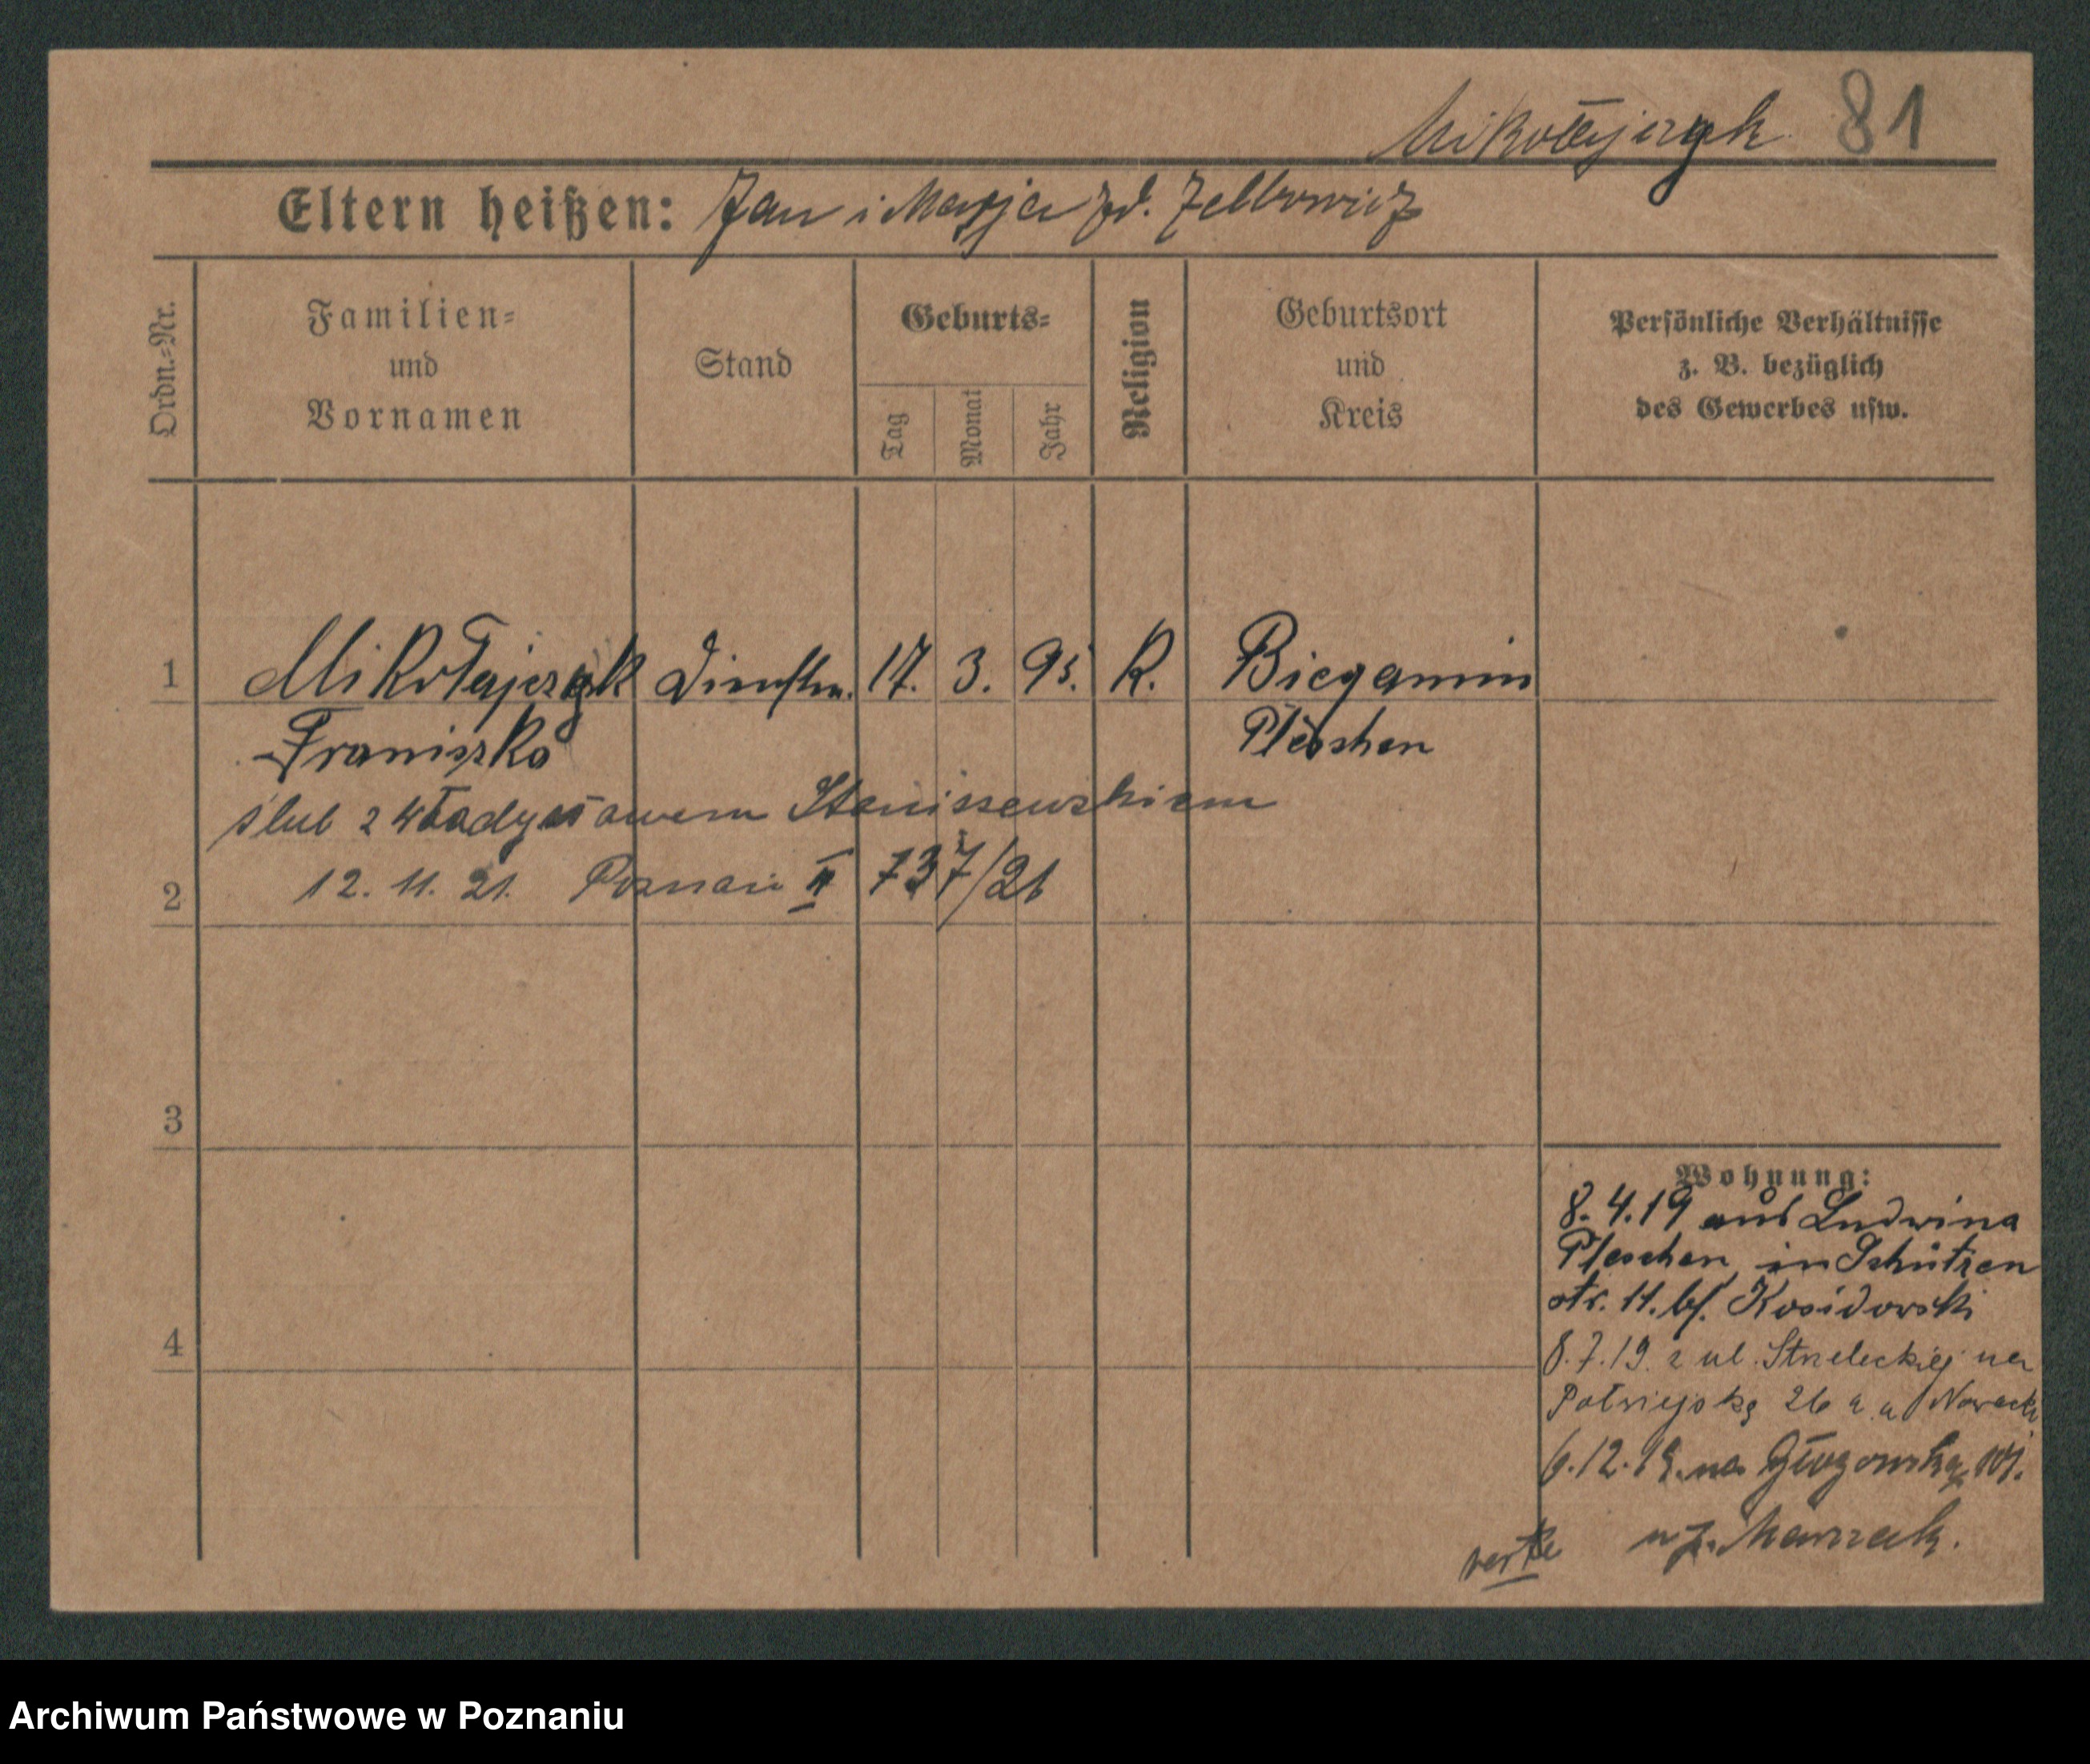 Mikołajczak 81
Eltern heißen: Jan i Marja
Ordn.-Nr.
Familien-
und
Vornamen
Stand
Geburts-
Tag
Monat
Jahr
Religion
Geburtsort
und
Kreis
Persönliche Verhältnisse
z. B. bezüglich
des Gewerbes usw.
1 Mikołajczak Dienstm. 17. 3. 95. K. Bieganin
Franiszka Pleschen
ślub z Władysławem Staniszewskiem
2 12. 11. 21. Poznań II 737/21
3
4
Wohnung:
8.4.19 aus Ludwina
Pleschen in Schützen
str. 11. bf. Kosidowski
8.7.19. z ul. Strzeleckiej na
Półwiejską 26 Nowack
6.12.19. na Głogowską
Marszalk.
verte
Archiwum Państwowe w Poznaniu